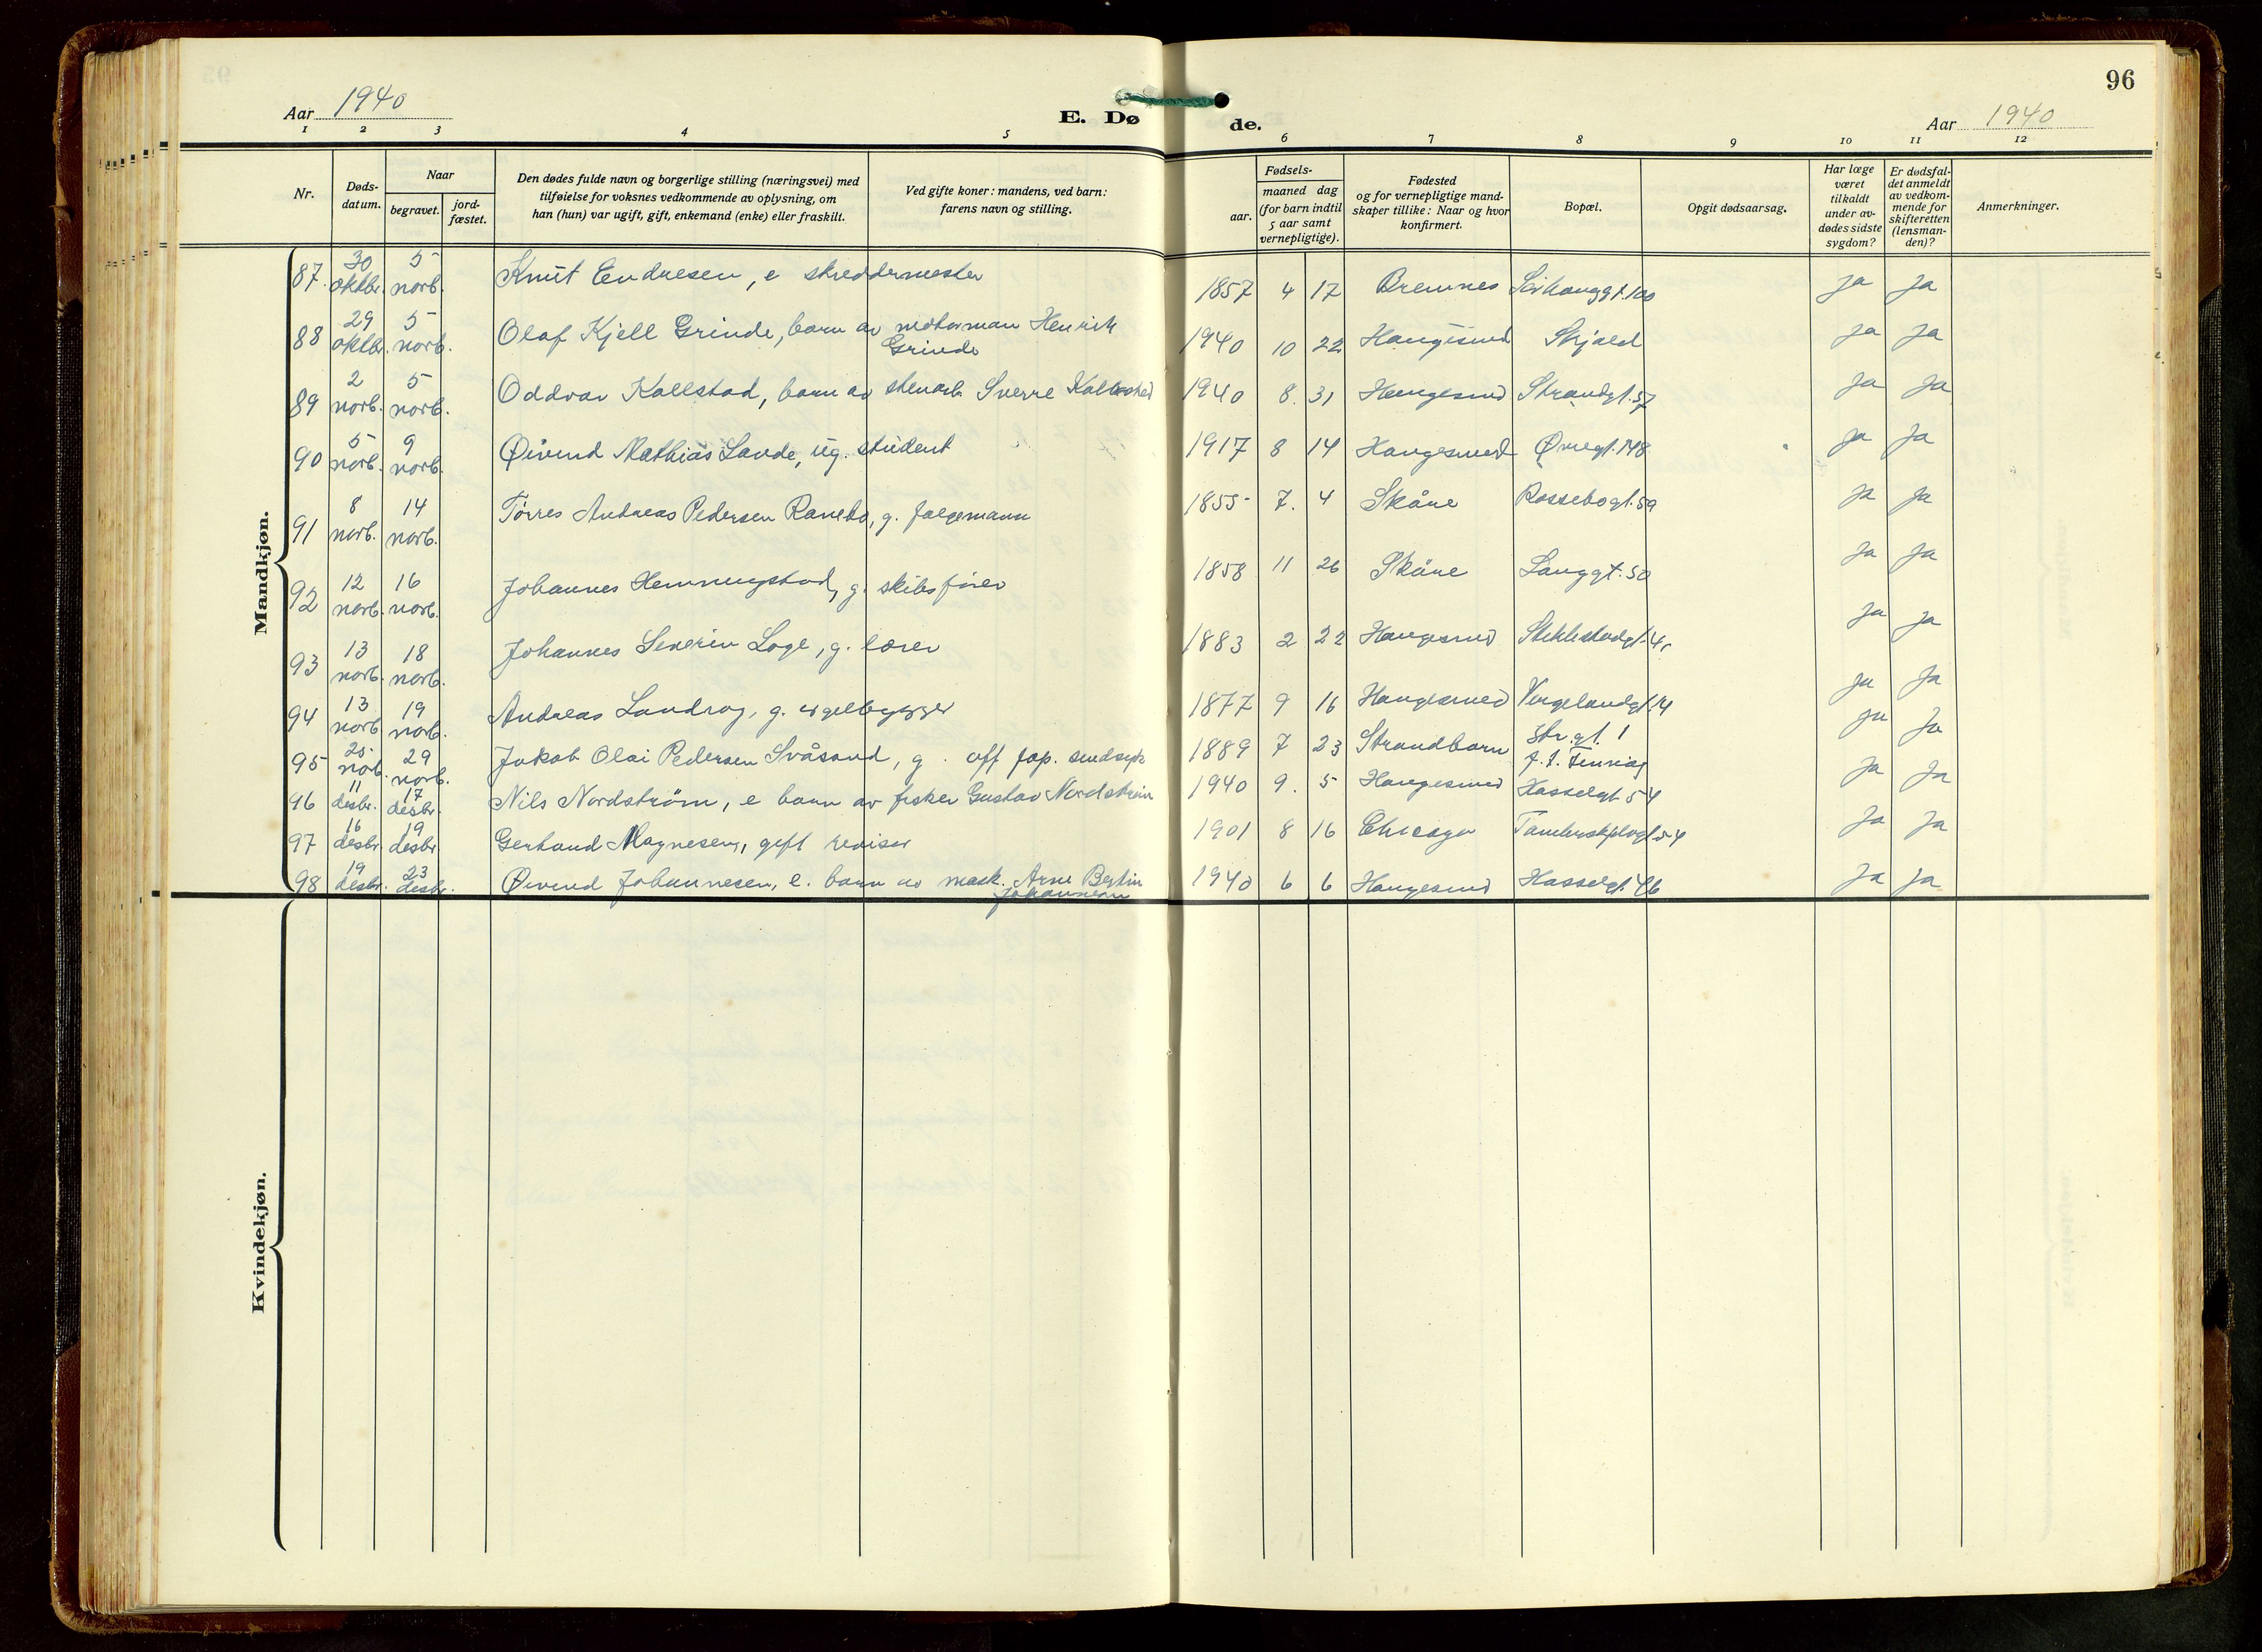 96
Aar 1940
E. Dø
de.
Aar 1940
1 2 3 4 5 6 7 8 9 10 11 12
Nr.
Døds-
datum.
Naar
begravet.
jord-
fæstet.
Den dødes fulde navn og borgerlige stilling (næringsvei) med
tilføielse for voksnes vedkommende av oplysning, om
han (hun) var ugift, gift, enkemand (enke) eller fraskilt.
Ved gifte koner: mandens, ved barn:
farens navn og stilling.
Fødsels-
aar.
maaned dag
(for barn indtil
5 aar samt
vernepligtige).
Fødested
og for vernepligtige mand-
skaper tillike: Naar og hvor
konfirmert.
Bopæl.
Opgit dødsaarsag.
Har læge
været
tilkaldt
under av-
dødes sidste
sygdom?
Er dødsfal-
det anmeldt
av vedkom-
mende for
skifteretten
(lensman-
den)?
Anmerkninger.
Mandkjøn.
87. 30 oktbr. 5 novb. Knut Endresen, e skreddermester 1857 4 17 Bremnes 100 Ja Ja
88 29 oktbr. 5 novb. Olaf Kjell Grinde, barn av motorman Henrik
Grinde 1940 10 22 Haugesund Skjold Ja Ja
89 2 novb. 5 novb. Oddvar Kallstad, barn av stenarb. Sverre Kallestad 1940 8. 31 Haugesund Strandgt. 57 Ja Ja
90 5 novb. 9 novb. Øivind Mathias Lande, ug. student 1917 8 14 Haugesund Øvregt. 148 Ja Ja
91 8 novb. 14 novb. Tørres Andreas Pedersen Ranebo, g. følgemann 1855 7. 4 Skåne Rossebogt. 59 Ja Ja
92 12 novb. 16 novb. Johannes Hemmingstad, g. skibsfører 1858 11 26 Skåne Langgt. 50 Ja Ja
93 13 novb. 18 novb. Johannes Severin Loge, g. lærer 1883 2 22 Haugesund Stiklestadgt. Ja Ja
94 13 novb 19 novb. Andreas Landrog, g. orgelbygger 1877 9 16 Haugesund Vergelandgt. 14 Ja Ja
95 25 nob. 29 novb. Jakob Olai Pedersen Svåsand, g. off. sindsyk 1889 7 23 Strandbarm Str. gt. 1 Ja Ja
96 11 desbr. 17 desbr. Nils Nordström, e barn av fisker Gustav Nordström 1940 9. 5 Haugesund Hasselgt. 54 Ja Ja
97 16 desbr. 19 desbr Gerhand Magnesen, gift revisor 1901 8 16 Chicago 54 Ja Ja
98 19 desbr. 23 desbr. Øivind Johannesen, e. barn av mask. Arne Bertin
Johannesen 1940 6 6 Haugesund Hasselgt. 46 Ja Ja
Kvindekjøn.